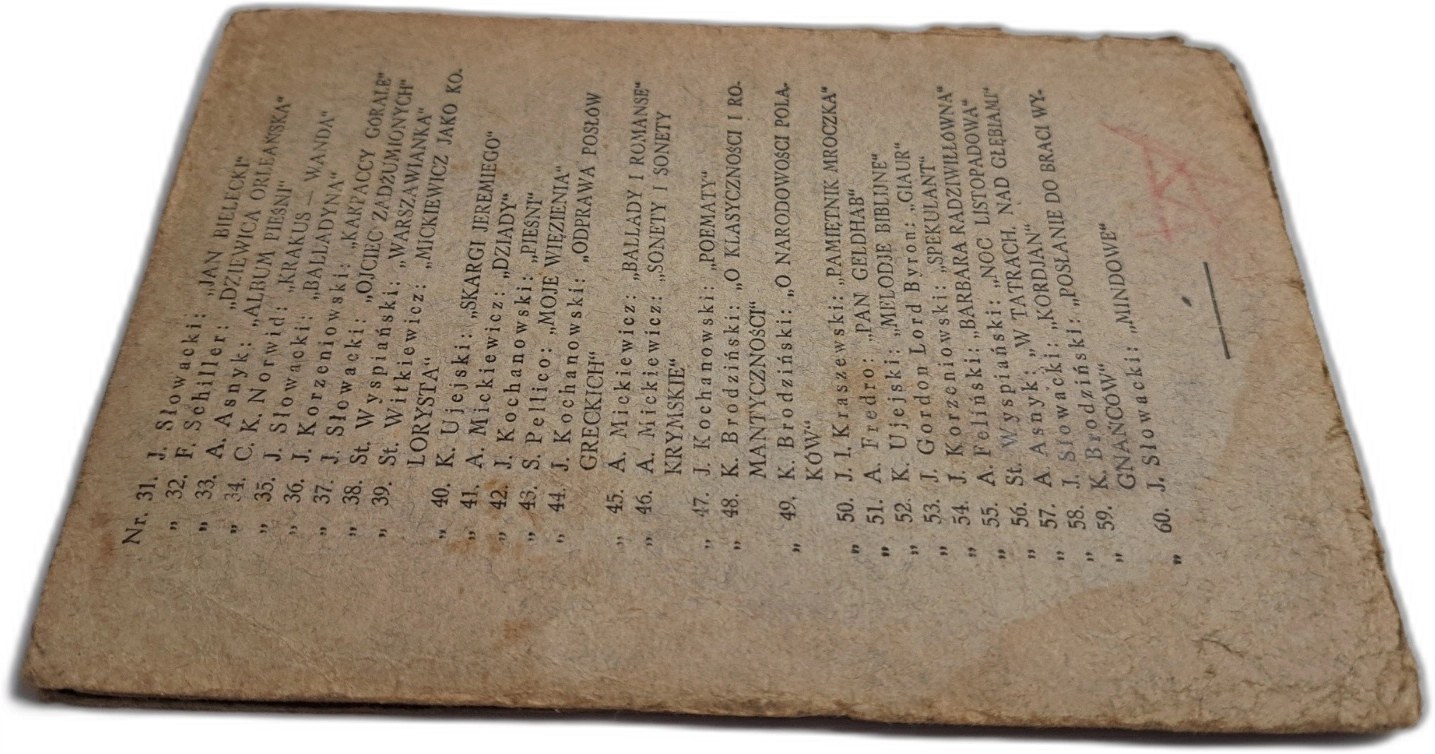 Nr. 31. J. Słowacki: „JAN BIELECKI“
„ 32. F. Schiller: „DZIEWICA ORLEAŃSKA“
„ 33. A. Asnyk: „ALBUM PIEŚNI“
„ 34. C. K. Norwid: „KRAKUS — WANDA“
„ 35. J. Słowacki: „BALLADYNA“
„ 36. J. Korzeniowski: „KARPACCY GÓRALE“
„ 37. J. Słowacki: „OJCIEC ZADŻUMIONYCH“
„ 38. St. Wyspiański: „WARSZAWIANKA“
„ 39. St. Witkiewicz: „MICKIEWICZ JAKO KO-
LORYSTA“
„ 40. K. Ujejski: „SKARGI JEREMIEGO“
„ 41. A. Mickiewicz: „DZIADY“
„ 42. J. Kochanowski: „PIEŚNI“
„ 43. S. Pellico: „MOJE WIĘZIENIA“
„ 44. J. Kochanowski: „ODPRAWA POSŁÓW
GRECKICH“
„ 45. A. Mickiewicz: „BALLADY I ROMANSE“
„ 46. A. Mickiewicz: „SONETY I SONETY
KRYMSKIE“
„ 47. J. Kochanowski: „POEMATY“
„ 48. K. Brodziński: „O KLASYCZNOŚCI I RO-
MANTYCZNOŚCI“
„ 49. K. Brodziński: „O NARODOWOŚCI POLA-
KÓW“
„ 50. J. I. Kraszewski: „PAMIĘTNIK MROCZKA“
„ 51. A. Fredro: „PAN GELDHAB“
„ 52. K. Ujejski: „MELODJE BIBLIJNE“
„ 53. J. Gordon Lord Byron: „GIAUR“
„ 54. J. Korzeniowski: „SPEKULANT“
„ 55. A. Feliński: „BARBARA RADZIWIŁŁÓWNA“
„ 56. St. Wyspiański: „NOC LISTOPADOWA“
„ 57. A. Asnyk: „W TATRACH, NAD GŁĘBIAMI“
„ 58. J. Słowacki: „KORDJAN“
„ 59. K. Brodziński: „POSŁANIE DO BRACI WY-
GNAŃCÓW“
„ 60. J. Słowacki: „MINDOWE“